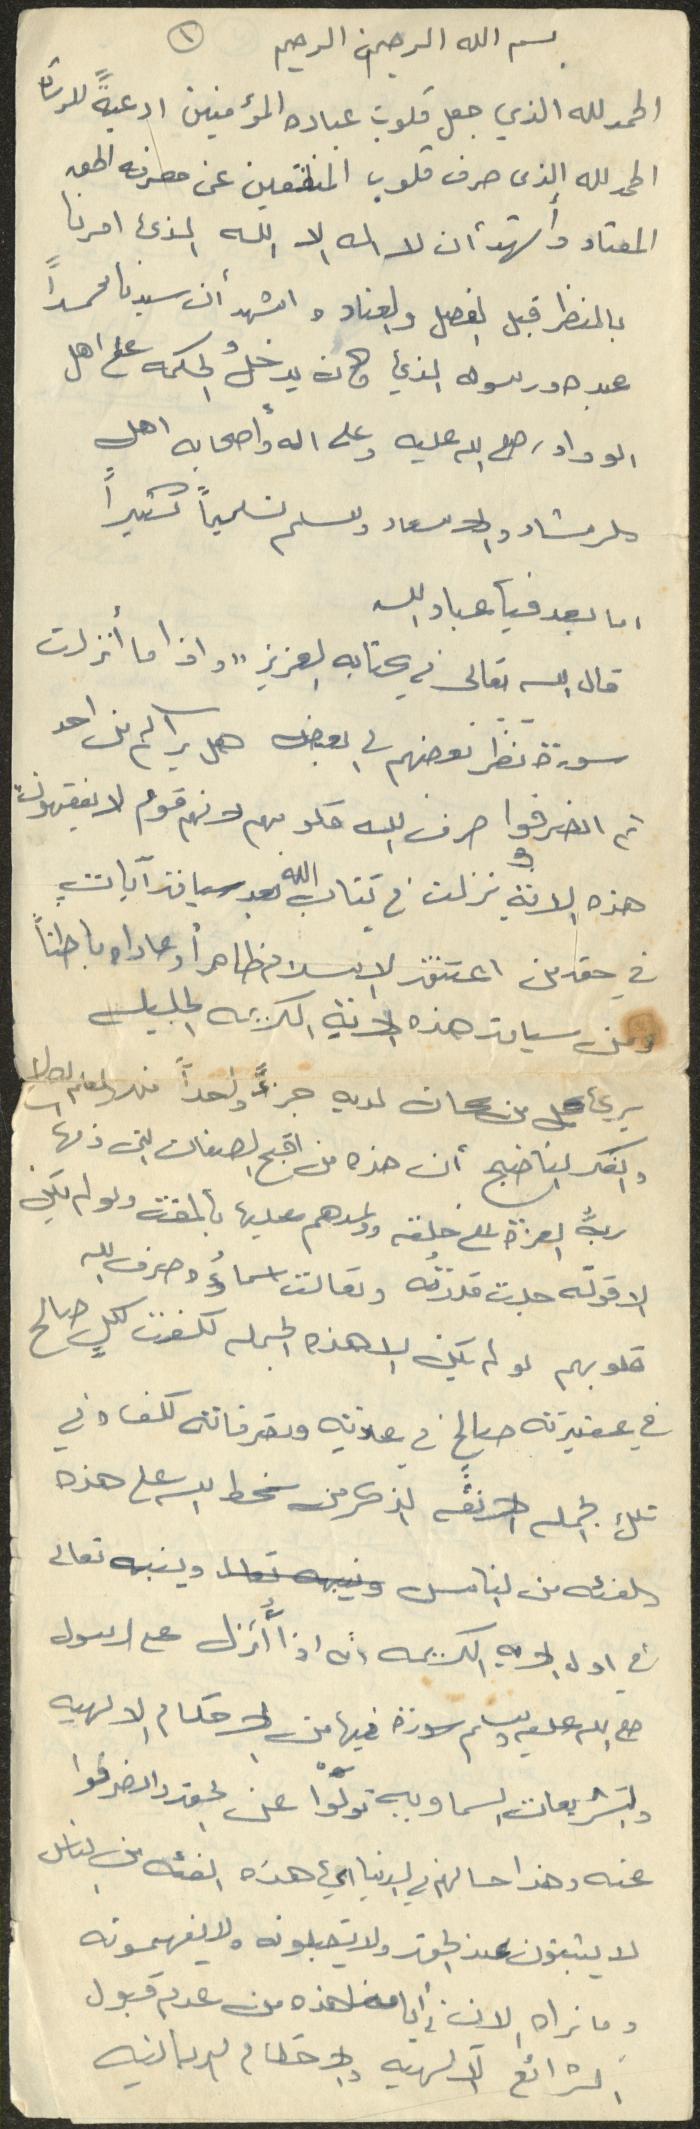 بسم الله الرحمن الرحيم ١
الحمد لله الذي جعل قلوب عباده المؤمنين ادعيةً للرشاد
الحمد لله الذي صرف قلوب المنافقين عن معرفه الحق
المعتاد وأشهد أن لا اله الا الله الذي امرنا
بالنظر قبل الفصل والعناد واشهد أن سيدنا محمداً
عبده ورسوله الذي كان يدخلُ الحكمه على اهل
الوداد، صلى الله عليه وعلى اله وأصحابه اهل
الرشاد والاسعاد وسلم تسليماً كثيراً
اما بعد فيا عباد الله
قال الله تعالى في كتابه العزيز "واذا ما أنزلت
سورة نظر بعضهم الى بعض هل يراكم من احد
ثم انصرفوا صرف الله قلوبهم لانهم قوم لا يفقهون"
هذه الاية نزلت في كتاب الله بعد سياق آيات
في حق من اعتنق الاسلام ظاهراً وعاداه باطناً
ومن سياق هذه الاية الكريمه الجليله
يرى كل من كان لديه جزءً واحداً من
والفكر الناضج أن هذه من اقبح الصفات التي ذمها
ربُّ العزة على خلقه ووعدهم عليها بالمقت ولو لم يكن
الا قوله جلت قدرتُه وتعالت اسماؤُه صرف الله
قلوبهم لو لم يكن الا هذه الجمله لكفت لكلِ صالح
في عقيدته صالح في علانيته وتصرفاته لكفاه في
تلك الجمله الذكر من سخط الله على هذه
الفئه من الناس وينبه تعالى وينبه تعالى
في اول الايه الكريمه انه اذا أُنزل على الرسول
صلى الله عليه وسلم سورة فيها من الاحكام الالهيه
والتشريعات السماويه تولّوا عن الحق وانصرفوا
عنه وهذا حالهم في الدنيا اي هذه الفئه من الناس
لا يثبتون عند الحق ولا يقبلونه ولا يفهمونه
وما نراه الان في أيامنا هذه من عدم قبول
الشرائع الالهيه والاحكام الربانيه